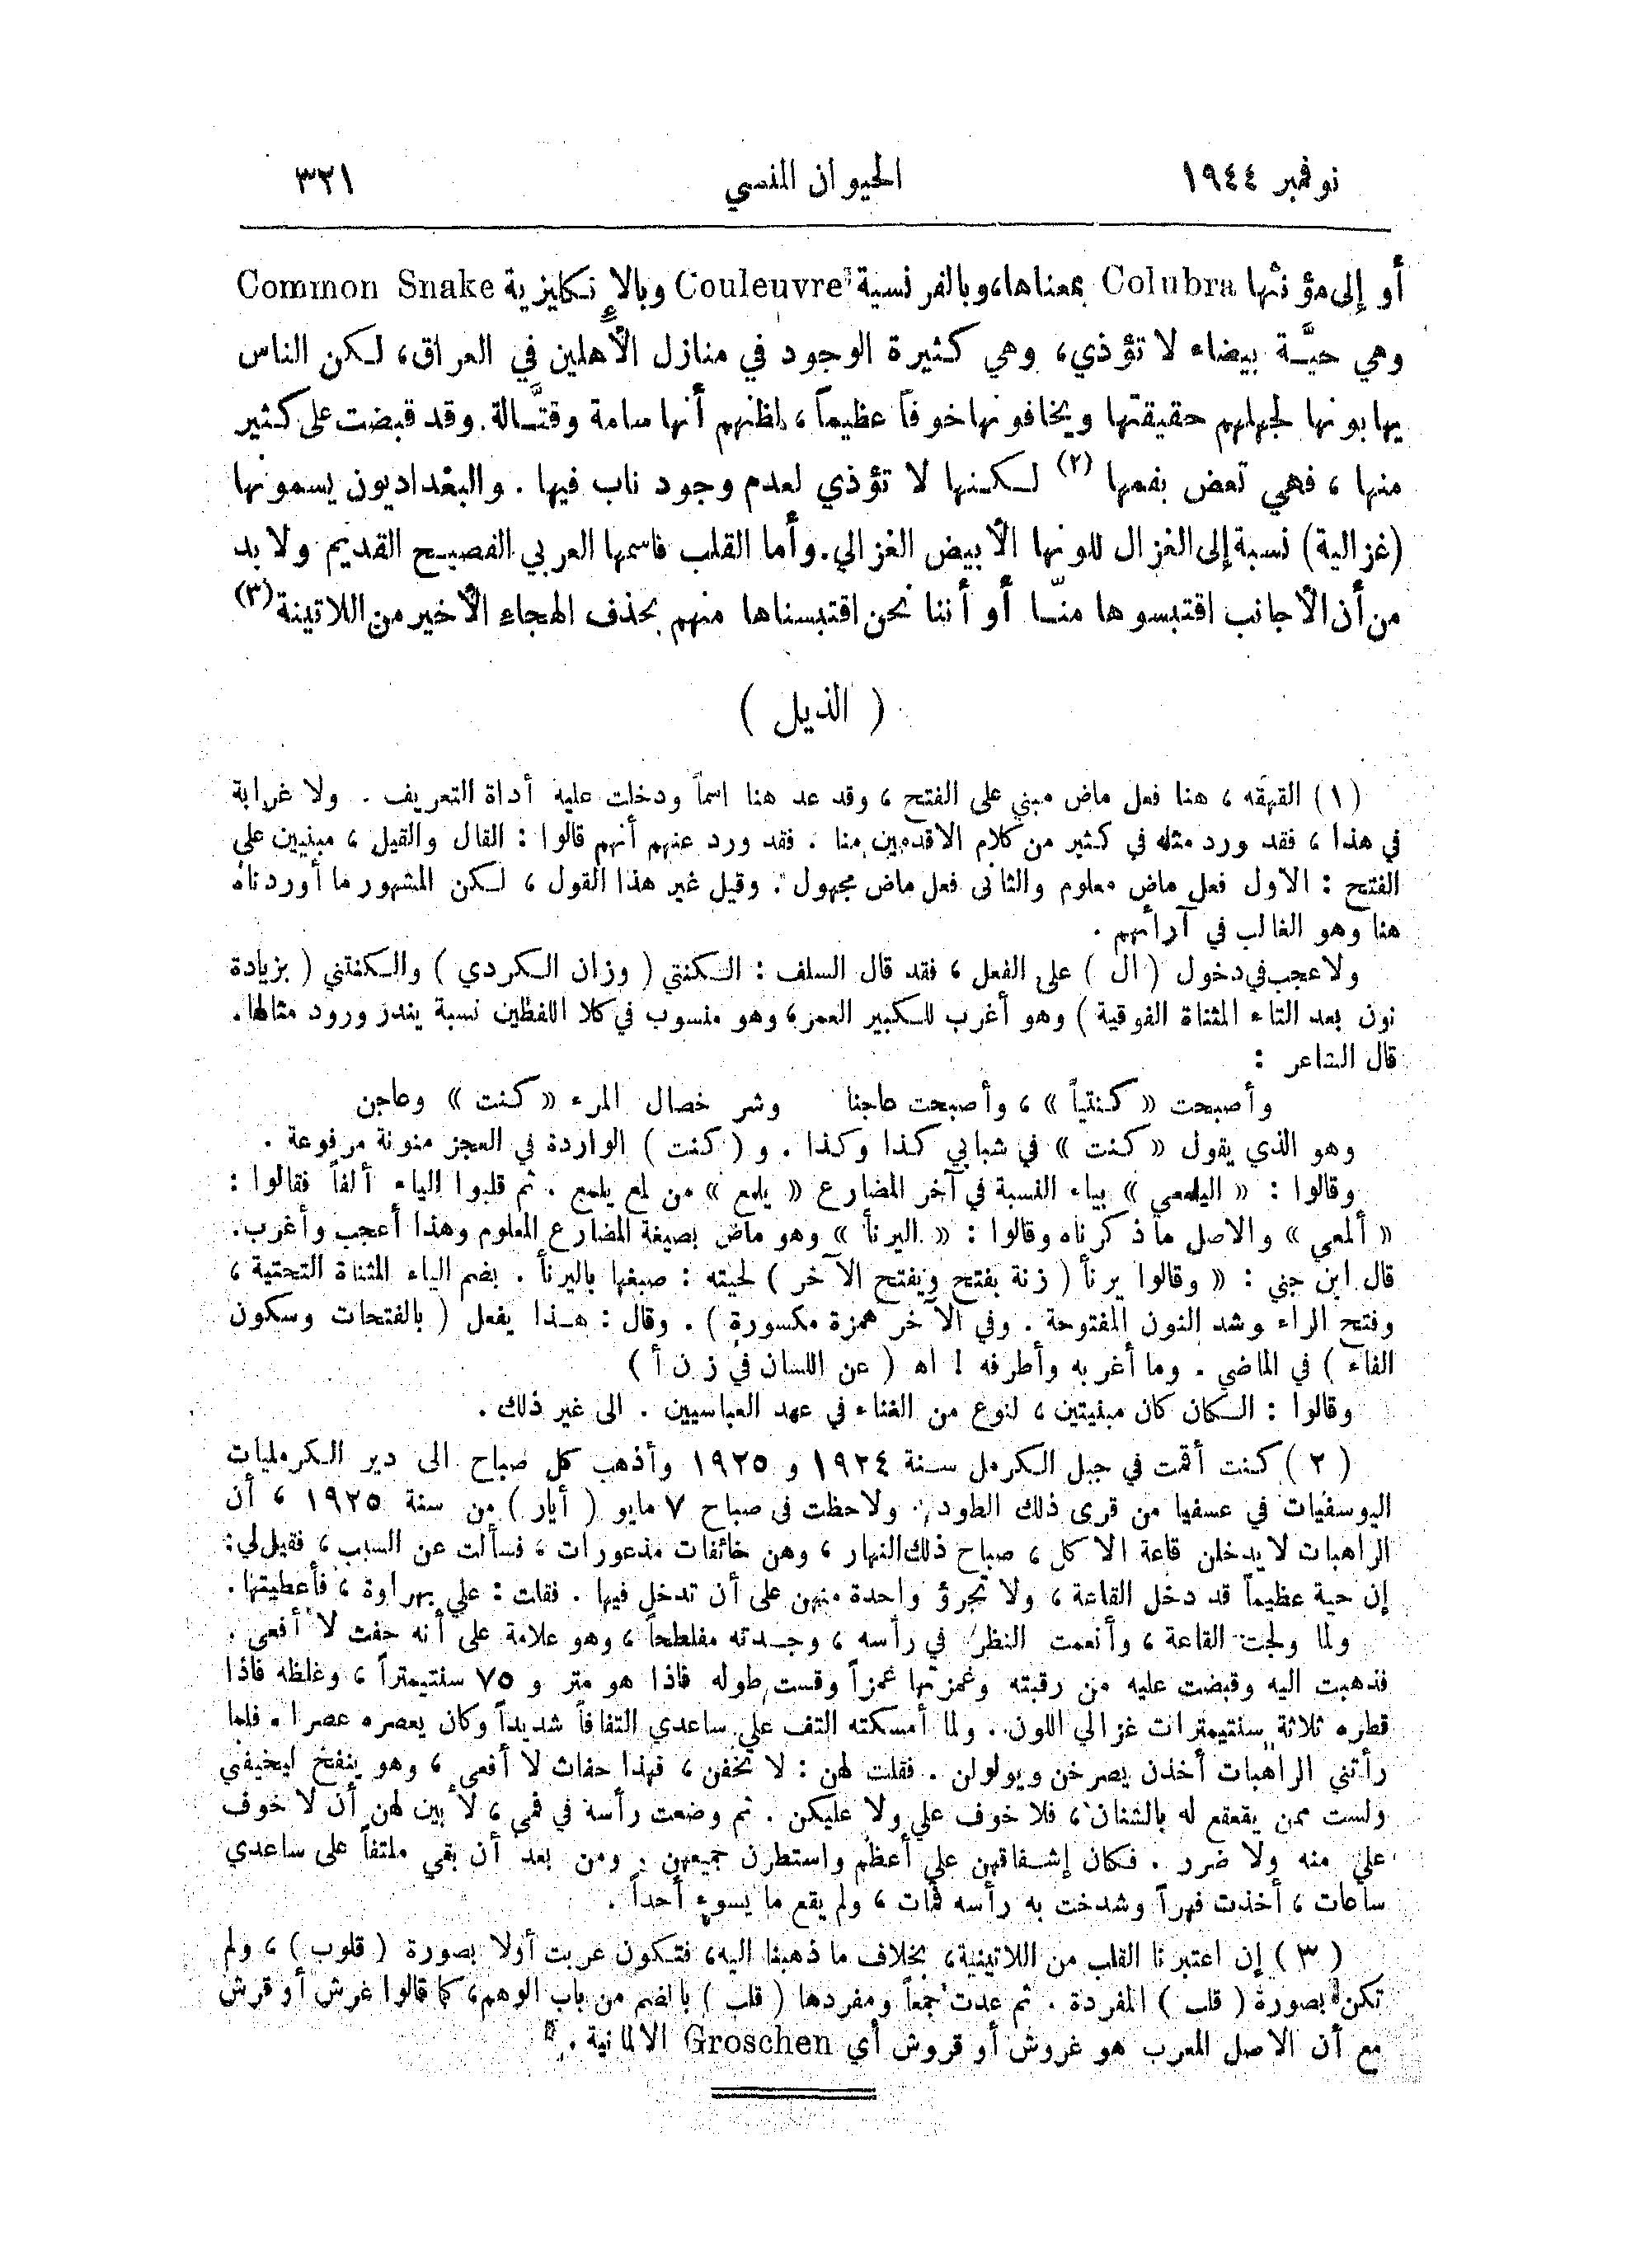 نوفمبر ١٩٤٤
الحيوان المنسي
٣٢١
أو إلى مؤنثها Colubra بمعناها، وبالفرنسية Couleuvre وبالإنكليزية Common Snake
وهي حيَّة بيضاء لا تؤذي، وهي كثيرة الوجود في منازل الأهلين في العراق، لكن الناس
يهابونها لجهلهم حقيقتها ويخافونها خوفاً عظيماً، لظنهم أنها سامة وقتَّالة. وقد قبضت على كثير
منها، فهي تعض بفمها (٢) لكنها لا تؤذي لعدم وجود ناب فيها. والبغداديون يسمونها
(غزالية) نسبة إلى الغزال للونها الأبيض الغزالي. وأما القلب فاسمها العربي الفصيح القديم ولا بد
من أن الأجانب اقتبسوها منّا أو أننا نحن اقتبسناها منهم بحذف الهجاء الأخير من اللاتينة (٣)
( الذيل )
(١) القهقَه، هنا فعل ماض مبني على الفتح، وقد عد هنا اسماً ودخلت عليه أداة التعريف. ولا غرابة
في هذا، فقد ورد مثله في كثير من كلام الاقدمين منا. فقد ورد عنهم أنهم قالوا: القال والقيل، مبنيين على
الفتح: الاول فعل ماض معلوم والثاني فعل ماض مجهول. وقيل غير هذا القول، لكن المشهور ما أوردناه
هنا وهو الغالب في آرائهم.
ولا عجب في دخول (ال) على الفعل، فقد قال السلف: الكنتي (وزان الكردي) والكنتني (بزيادة
نون بعد التاء المثناة الفوقية) وهو أغرب للكبير العمر، وهو منسوب في كلا اللفظين نسبة يندر ورود مثالها.
قال الشاعر:
وأصبحت «كنتياً»، وأصبحت عاجنا وشر خصال المرء «كنت» وعاجن
وهو الذي يقول «كنت» في شبابي كذا وكذا. و(كنت) الواردة في العجز منونة مرفوعة.
وقالوا: «اليلمعي» بياء النسبة في آخر المضارع «يلمع» من لمع يلمع. ثم قلبوا الياء ألفاً فقالوا:
«ألمعي» والاصل ما ذكرناه وقالوا: «اليرنأ» وهو ماض بصيغة المضارع المعلوم وهذا أعجب وأغرب.
قال ابن جني: «وقالوا يرنأ (زنة يفتح ويفتح الآخر) لحيته: صبغها باليرنأ. بضم الياء المثناة التحتية،
وفتح الراء وشد النون المفتوحة. وفي الآخر همزة مكسورة). وقال: هذا يفعل (بالفتحات وسكون
الفاء) في الماضي. وما أغربه وأطرفه! اه (عن اللسان في ز ن أ)
وقالوا: الكان كان مبنيتين، لنوع من الغناء في عهد العباسيين. الى غير ذلك.
(٢) كنت أقمت في جبل الكرمل سنة ١٩٢٤ و ١٩٢٥ وأذهب كل صباح الى دير الكرمليات
اليوسفيات في عسفيا من قرى ذلك الطود، ولاحظت فى صباح ٧ مايو (أيار) من سنة ١٩٢٥، أن
الراهبات لا يدخلن قاعة الاكل، صباح ذلك النهار، وهن خائفات مذعورات، فسألت عن السبب، فقيل لي:
إن حية عظيماً قد دخل القاعة، ولا تجرؤ واحدة منهن على أن تدخل فيها. فقلت: علي بهراوة، فأعطيتها.
ولما ولجت القاعة، وأنعمت النظر في رأسه، وجدته مفلطحاً، وهو علامة على أنه حفث لا أفعى.
فذهبت اليه وقبضت عليه من رقبته وغمزتها غمزاً وقست طوله فاذا هو متر و ٧٥ سنتيمتراً، وغلظه فاذا
قطره ثلاثة سنتيمترات غزالي اللون. ولما أمسكته التف علي ساعدي التفافاً شديداً وكان يعصره عصرا. فلما
رأتني الراهبات أخذن يصرخن ويولولن. فقلت لهن: لا تخفن، فهذا حفاث لا أفعى، وهو ينفخ ليخيفني
ولست ممن يقعقع له بالشنان، فلا خوف علي ولا عليكن. ثم وضعت رأسه في فمي، لأبين لهن أن لا خوف
علي منه ولا ضرر. فكان إشفاقهن علي أعظم واستطرن جميعهن. ومن بعد أن بقي ملتفاً على ساعدي
ساعات، أخذت فهراً وشدخت به رأسه فمات، ولم يقع ما يسوء أحداً.
(٣) إن اعتبرنا القلب من اللاتينية، بخلاف ما ذهبنا اليه، فتكون عربت أولا بصورة (قلوب)، ولم
تكن بصورة (قلب) المفردة. ثم عدت جمعاً ومفردها (قلب) بالضم من باب الوهم، كما قالوا غرش أو قرش
مع أن الاصل المعرب هو غروش أو قروش أي Groschen الالمانية.